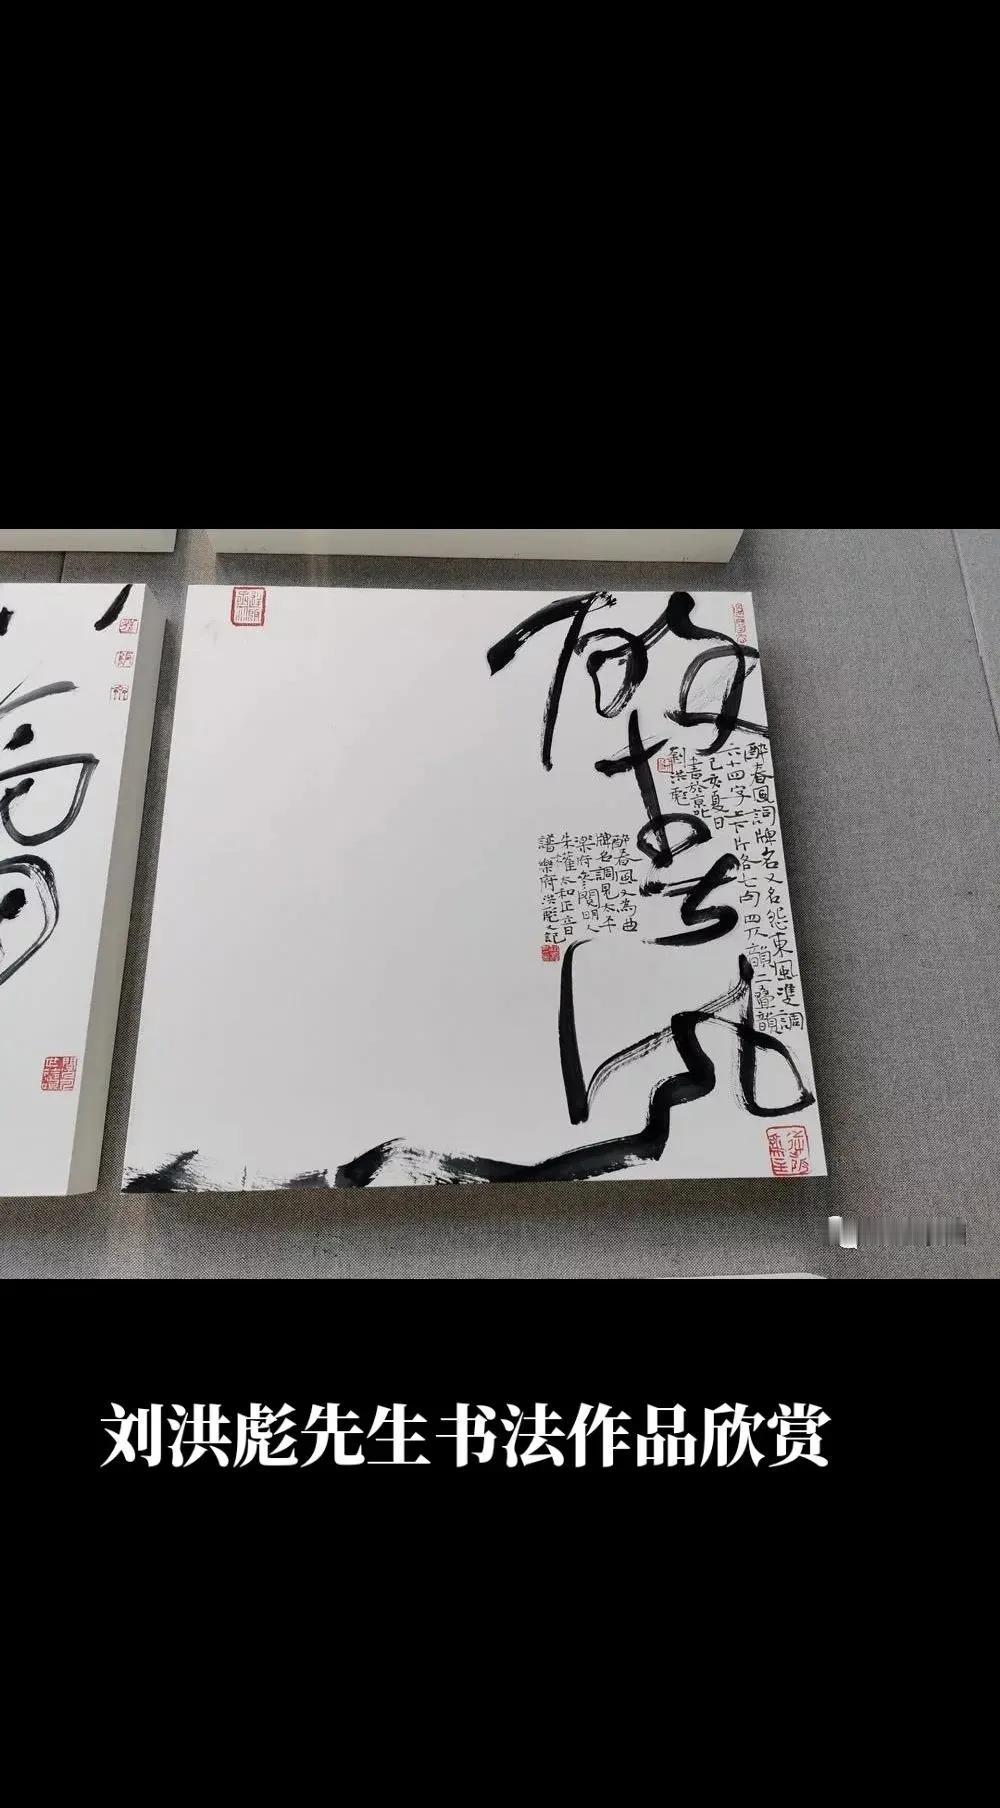 醉春風
醉春風詞牌名又名怨東風雙調
六十四字上下片各七句四仄韻二疊韻
己亥夏日
書於京北
劉洪彪
醉春風又為曲
牌名調見太平
樂府參閱明人
朱權太和正音
譜樂府洪彪又記
刘洪彪先生书法作品欣赏